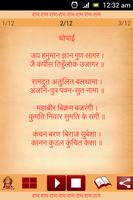 राम राम राम राम राम राम राम राम
1/12 2/12 3/12
चोपाई
जय हनुमान ज्ञान गुण सागर ।
जै कपीस तिहुँलोक उजागर ॥
रामदुत अतुलित बलधामा ।
अंजनि-पुत्र पवनसुत नामा ॥
महाबीर बिक्रम बजरंगी ।
कुमति निवार सुमति के संगी ॥
कंचन बरण बिराज सुबेशा ।
कानन कुंडल कुंचित केशा ॥
राम राम राम राम राम राम राम राम